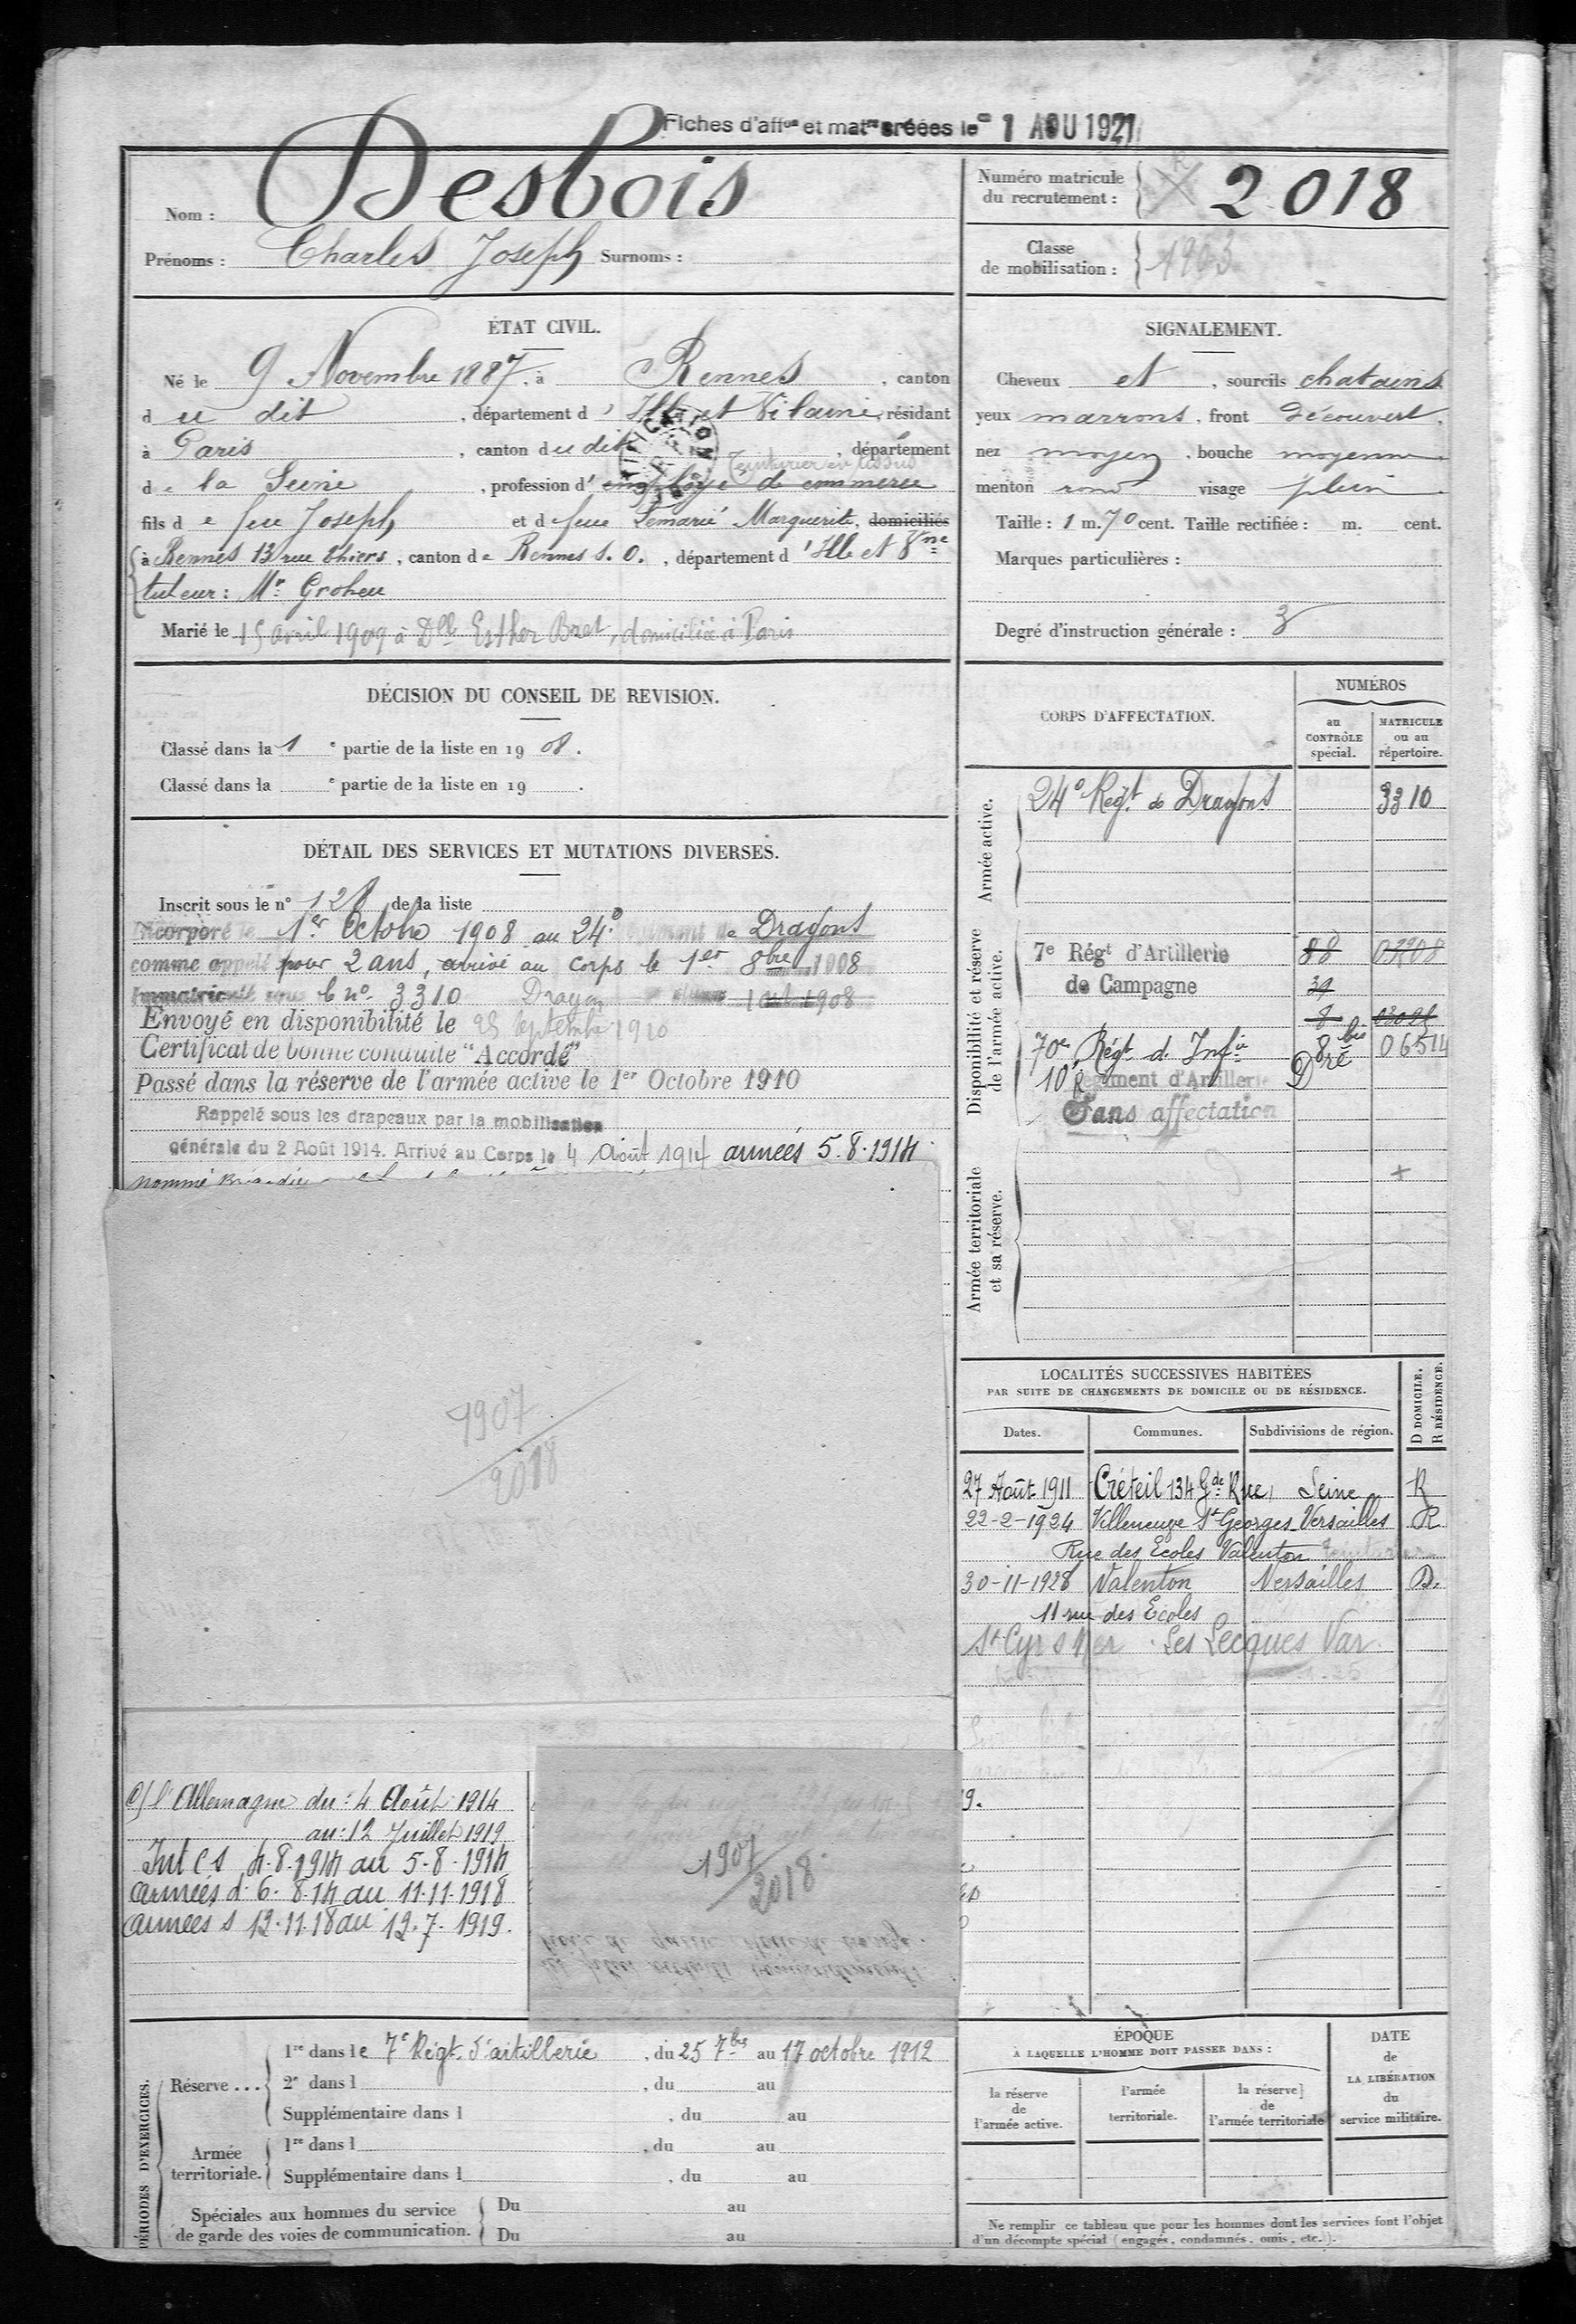 Fiches d'affon et matle créées le 1 AOU 1921
Nom : Desbois
Prénoms : Charles Joseph Surnoms :
Numéro matricule du recrutement : 2018
Classe de mobilisation : 1903
ÉTAT CIVIL.
Né le 9 Novembre 1887, à Rennes, canton
du dit, département d'Ille et Vilaine, résidant
à Paris, canton du dit, département
de la Seine, profession d' employé de commerce
Teinturier en tissus
fils de feu Joseph et de feue Lemarié Marguerite, domiciliés
à Rennes 13 rue Thiers, canton de Rennes S.O., département d'Ille et Vne
tuteur : Mr Groheu
Marié le 15 avril 1909 à Dlle Esther Bret, domiciliée à Paris
SIGNALEMENT.
Cheveux et, sourcils chatains
yeux marrons, front découvert,
nez moyen, bouche moyenne
menton rond visage plein
Taille : 1 m. 70 cent. Taille rectifiée : m. cent.
Marques particulières :
Degré d'instruction générale : 3
DÉCISION DU CONSEIL DE REVISION.
Classé dans la 1e partie de la liste en 1908.
Classé dans la e partie de la liste en 19 .
DÉTAIL DES SERVICES ET MUTATIONS DIVERSES.
Inscrit sous le n° 128 de la liste
Incorporé le 1er Octobre 1908 au 24e Régiment de Dragons
comme appelé pour 2 ans, arrivé au corps le 1er 8bre 1908
Immatriculé sous le no 3310 Dragon 1 oct 1908
Envoyé en disponibilité le 25 Septembre 1910
Certificat de bonne conduite "Accordé"
Passé dans la réserve de l'armée active le 1er Octobre 1910
Rappelé sous les drapeaux par la mobilisation
générale du 2 Août 1914. Arrivé au Corps le 4 Août 1914 armées 5.8.1914
nommé
1907
2018
CORPS D'AFFECTATION.
NUMÉROS
au CONTRÔLE spécial.
MATRICULE ou au répertoire.
Armée active.
24e Régt de Dragons 3310
Disponibilité et réserve de l'armée active.
7e Régt d'Artillerie 88 03208
de Campagne 39
8
70e Régt d'Infie 8 bis 06514
10e Régiment d'Artillerie Dre
Sans affectation
Armée territoriale et sa réserve.
LOCALITÉS SUCCESSIVES HABITÉES
PAR SUITE DE CHANGEMENTS DE DOMICILE OU DE RÉSIDENCE.
Dates. Communes. Subdivisions de région. D DOMICILE. R RÉSIDENCE.
27 Août 1911 Créteil 134 Gde Rue, Seine R
22-2-1924 Villeneuve St Georges Versailles R
Rue des Ecoles Valenton
30-11-1928 Valenton Versailles D.
11 rue des Ecoles
St Cyr s Mer Les Lecques Var
c/ l'Allemagne du : 4 Août 1914
au : 12 Juillet 1919
Int C S 4.8.1914 au 5-8-1914
Armées d. 6.8.14 au 11.11.1918
armées s 12.11.18 au 12.7.1919.
1907
2018
PÉRIODES D'EXERCICES.
Réserve ... 1re dans le 7e Régt d'artillerie, du 25 7bre au 17 octobre 1912
2e dans l , du au
Supplémentaire dans l , du au
Armée territoriale. 1re dans l , du au
Supplémentaire dans l , du au
Spéciales aux hommes du service de garde des voies de communication. Du au
Du au
ÉPOQUE
À LAQUELLE L'HOMME DOIT PASSER DANS :
la réserve de l'armée active.
l'armée territoriale.
la réserve de l'armée territoriale
DATE de LA LIBÉRATION du service militaire.
Ne remplir ce tableau que pour les hommes dont les services font l'objet
d'un décompte spécial (engagés, condamnés, omis, etc.).